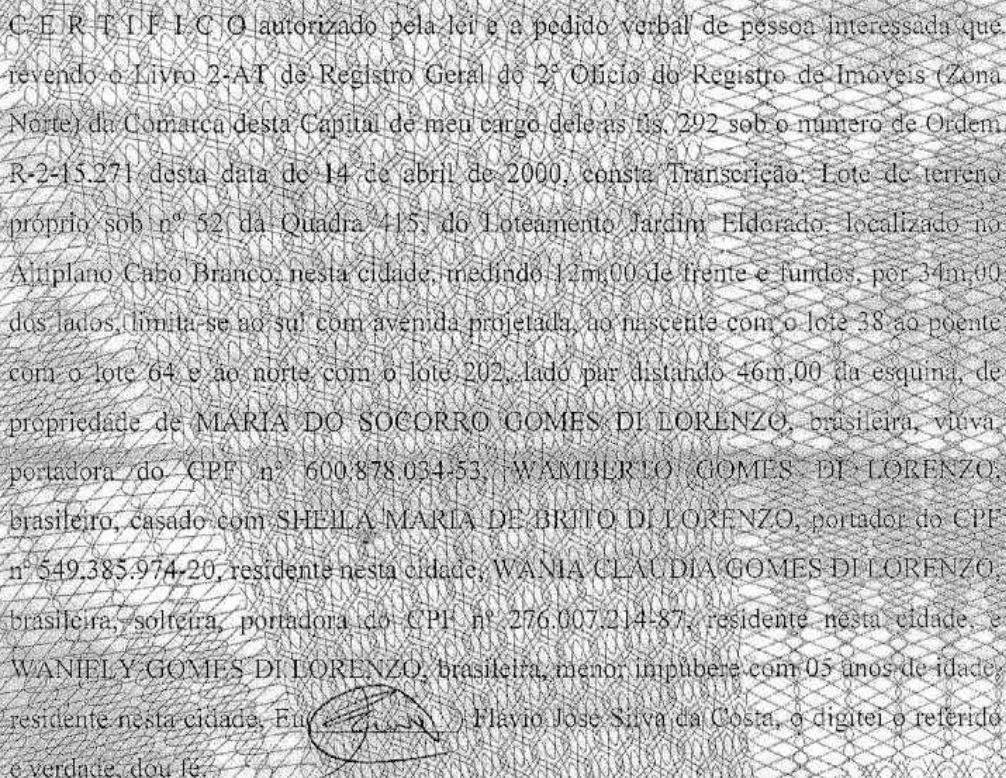 C E R T I F I C O autorizado pela lei e a pedido verbal de pessoa interessada que
revendo o Livro 2-AT de Registro Geral do 2º Oficio do Registro de Imóveis (Zona
Norte) da Comarca desta Capital de meu cargo dele as fls. 292 sob o número de Ordem
R-2-15.271 desta data de 14 de abril de 2000, consta Transcrição: Lote de terreno
próprio sob nº 52 da Quadra 415, do Loteamento Jardim Eldorado, localizado no
Altiplano Cabo Branco, nesta cidade, medindo 12m,00 de frente e fundos, por 34m,00
dos lados, limita-se ao sul com avenida projetada, ao nascente com o lote 38 ao poente
com o lote 64 e ao norte com o lote 202, lado par distando 46m,00 da esquina, de
propriedade de MARIA DO SOCORRO GOMES DI LORENZO, brasileira, viúva,
portadora do CPF nº 600.878.034-53, WAMBERTO GOMES DI LORENZO,
brasileiro, casado com SHEILA MARIA DE BRITO DI LORENZO, portador do CPF
nº 549.385.974-20, residente nesta cidade, WANIA CLAUDIA GOMES DI LORENZO,
brasileira, solteira, portadora do CPF nº 276.007.214-87, residente nesta cidade, e
WANIELY GOMES DI LORENZO, brasileira, menor impúbere com 05 anos de idade,
residente nesta cidade. Eu Flávio José Silva da Costa, o digitei o referido
é verdade, dou fé